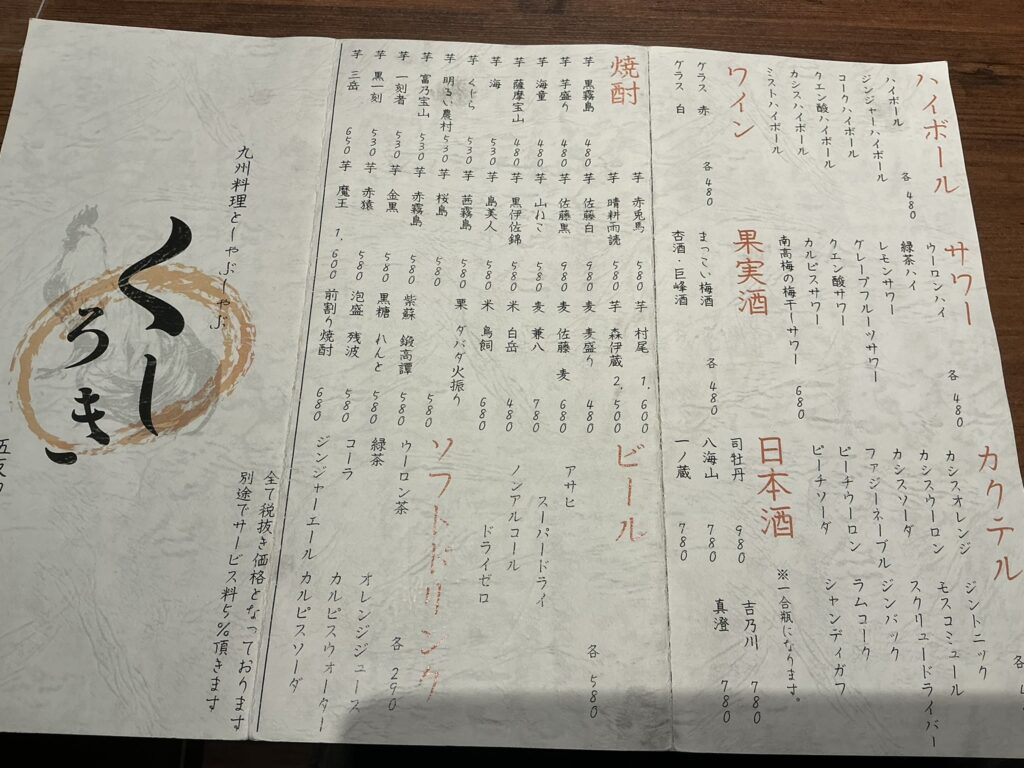 ハイボール
ハイボール
ジンジャーハイボール
コークハイボール
クエン酸ハイボール
カシスハイボール
ミストハイボール
各 480
サワー
ウーロンハイ
緑茶ハイ
レモンサワー
グレープフルーツサワー
クエン酸サワー
カルピスサワー
南高梅の梅干ーサワー 680
各 480
カクテル
カシスオレンジ
カシスウーロン
カシスソーダ
ファジーネーブル
ピーチウーロン
ピーチソーダ
ジントニック
モスコミュール
スクリュードライバー
ジンバック
ラムコーク
シャンディガフ
各
ワイン
グラス 赤
グラス 白
各 480
果実酒
まっこい梅酒
杏酒・巨峰酒
各 480
日本酒
※一合瓶になります。
司牡丹 980
八海山 780
一ノ蔵 780
吉乃川 780
真澄 780
焼酎
芋 黒霧島 480
芋 芋盛り 480
芋 海童 480
芋 薩摩宝山 480
芋 海 530
芋 くじら 530
芋 明るい農村 530
芋 富乃宝山 530
芋 一刻者 530
芋 黒一刻 530
芋 三岳 650
芋 赤兎馬 580
芋 晴耕雨読 580
芋 佐藤白 980
芋 佐藤黒 980
芋 山ねこ 580
芋 黒伊佐錦 580
芋 島美人 580
芋 茜霧島 580
芋 桜島 580
芋 赤霧島 580
芋 金黒 580
芋 赤猿 580
芋 魔王 1,600
芋 村尾 1,600
芋 森伊蔵 2,500
麦 麦盛り 480
麦 佐藤 麦 680
麦 兼八 780
米 白岳 480
米 鳥飼 680
栗 ダバダ火振り 580
紫蘇 鍛高譚 580
黒糖 れんと 580
泡盛 残波 580
前割り焼酎 680
ビール
アサヒ
スーパードライ
ノンアルコール
ドライゼロ
各 580
ソフトドリンク
ウーロン茶
緑茶
コーラ
ジンジャーエール
オレンジジュース
カルピスウォーター
カルピスソーダ
各 290
全て税抜き価格となっております
別途でサービス料5%頂きます
九州料理としゃぶしゃぶ
くし
ろき